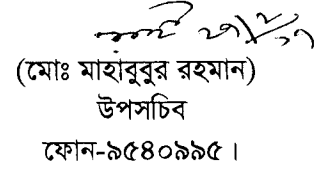 (মোঃ মাহাবুবুর রহমান)
উপসচিব
ফোন-৯৫৪০৯৯৫।